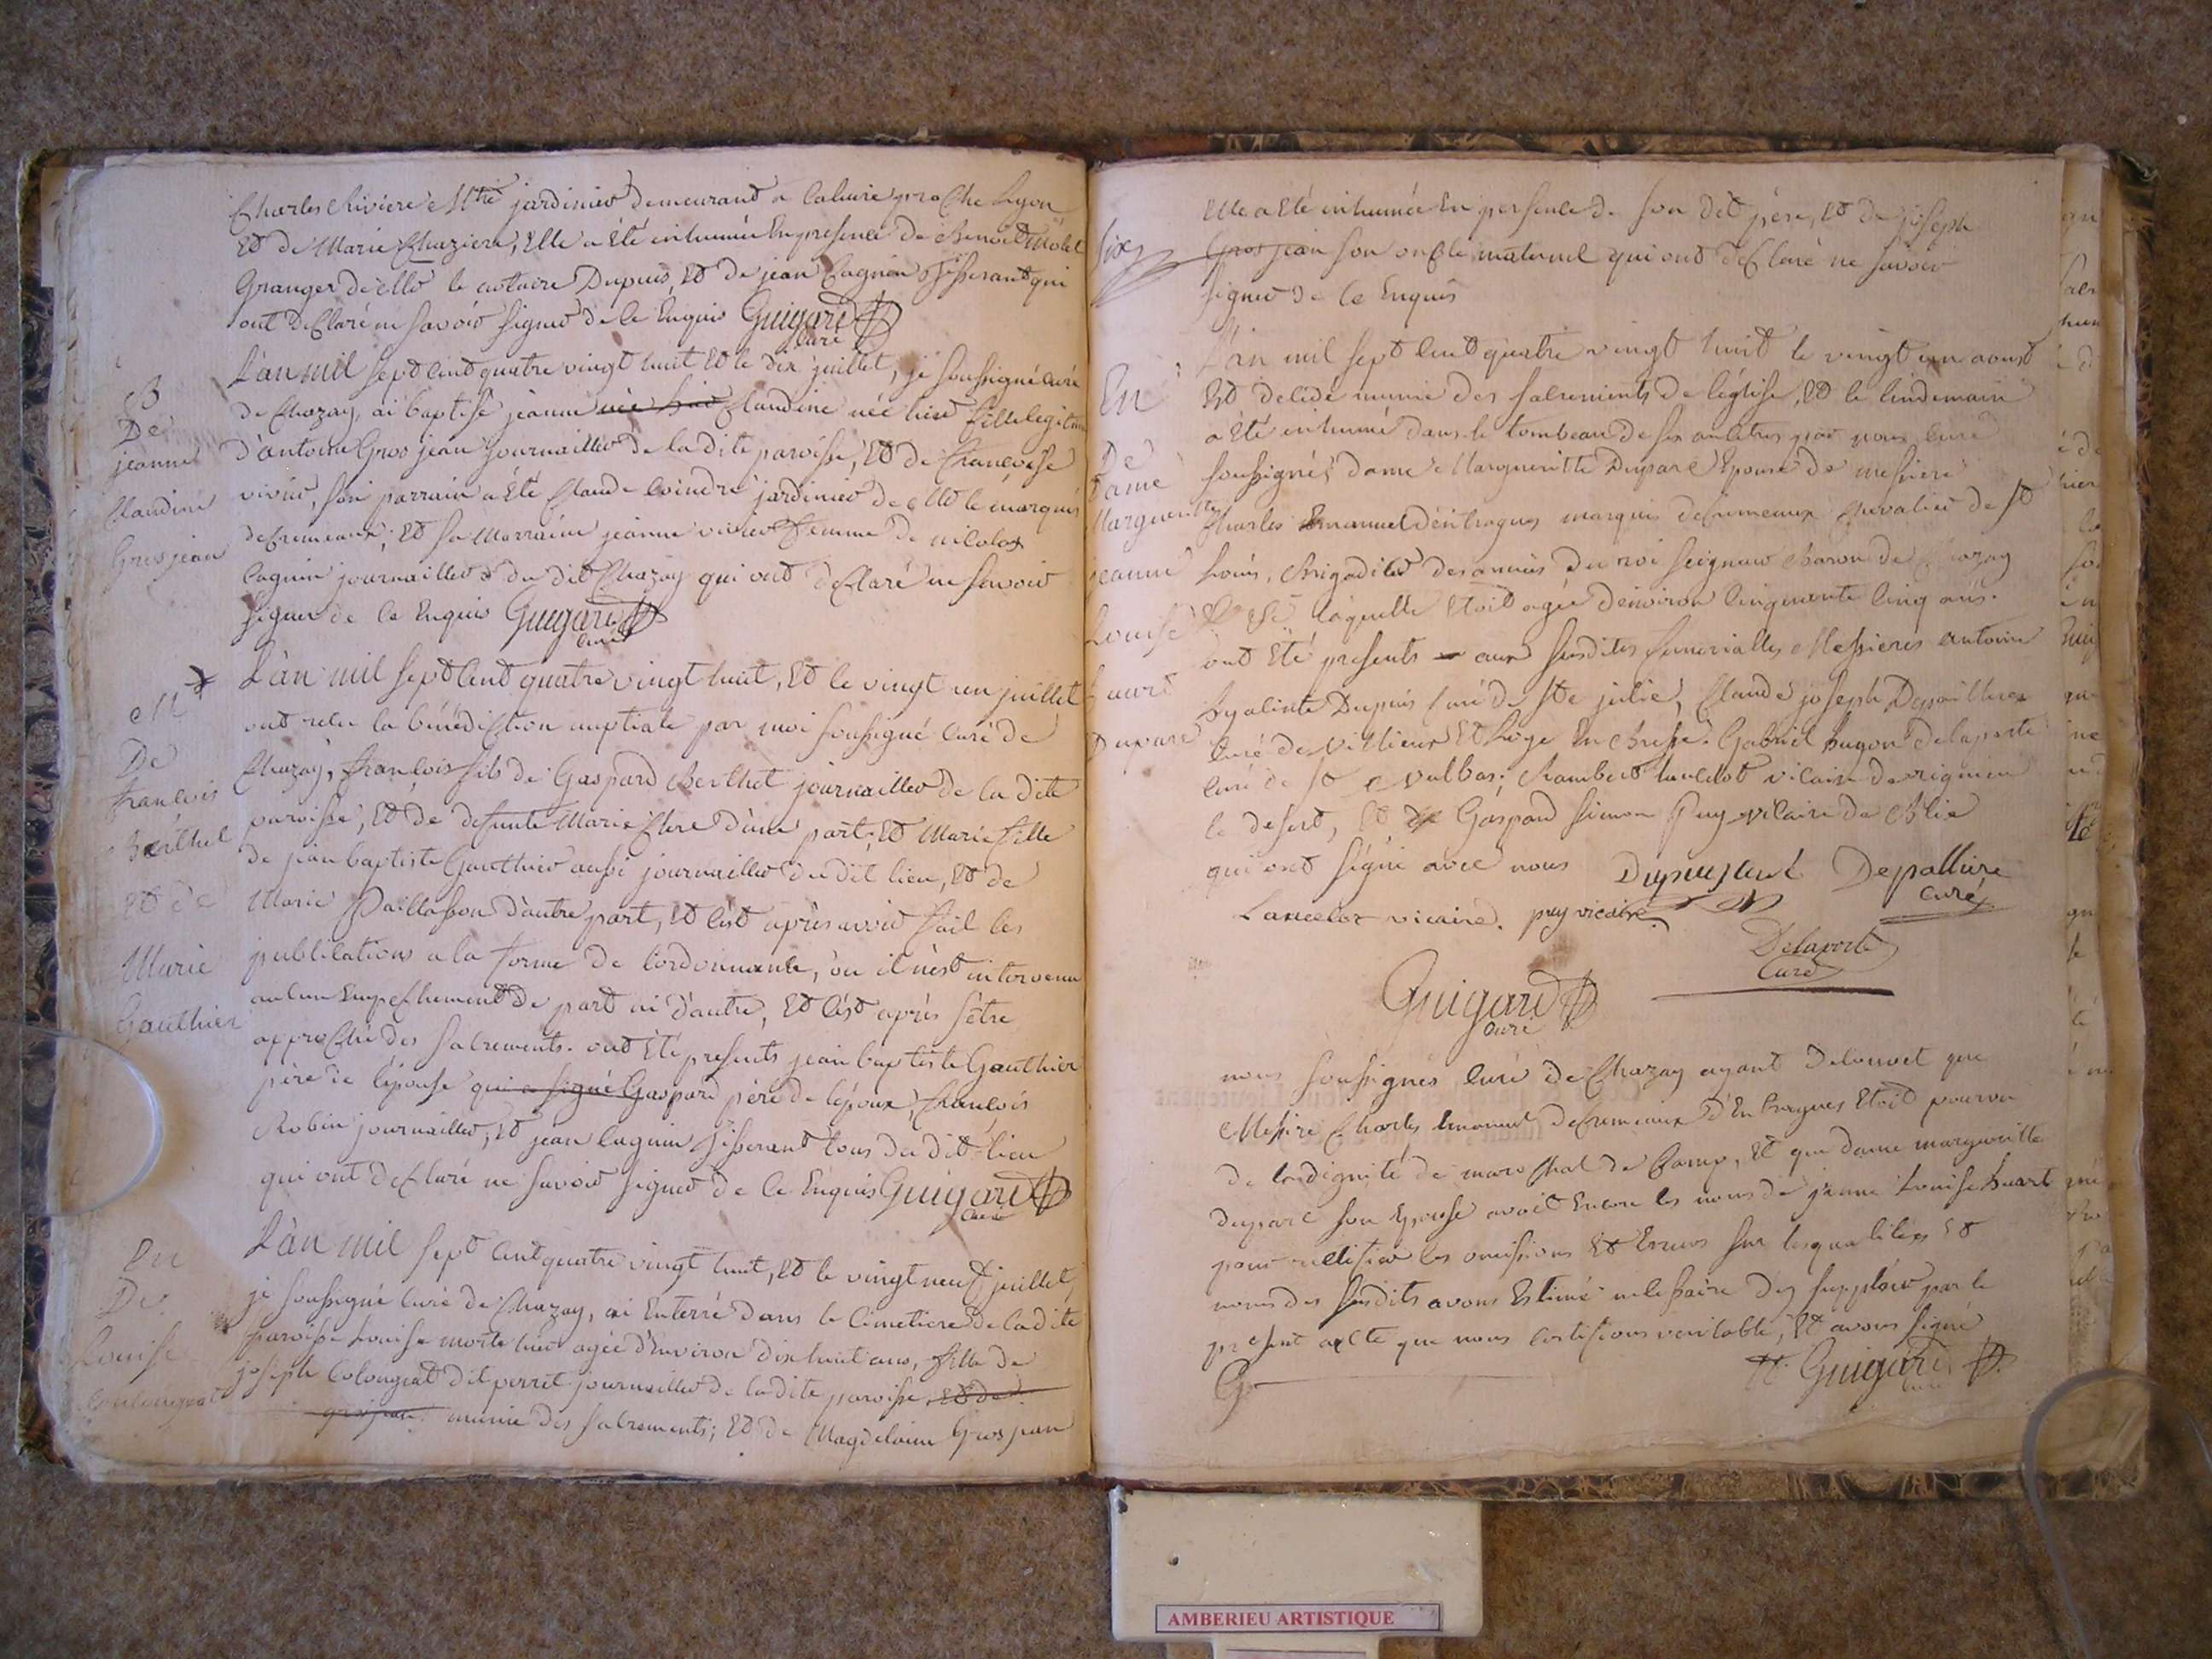 Charles Riviere Mtre jardinier demeurand a Caluire proche Lyon
Et de Marie Chaziere, Elle a été inhumée En presence de Benoit Molet
Granger de le notaire Dupuis, Et de jean Cagnin tisserant qui
ont declaré ne savoir signer de ce Enquis Guigard
curé
L'an mil sept cent quatre vingt huit Et le dix juillet, je soussigné curé
de Chazay, ai baptisé jeanne Claudine née hier fille legitime
d'antoine Gros jean journaillier de la dite paroisse, Et de françoise
vivier, son parrain a Eté Claude Coindre jardinier de le marquis
decremeaux, Et sa Marraine jeanne vivier femme de nicolas
Cagnin journaillier du dit Chazay qui ont declaré ne savoir
signer de ce Enquis Guigard
curé
B
De
jeanne
Claudine
Grosjean
L'an mil sept Cent quatre vingt huit, Et le vingt un juillet
ont recu la bénédiction nuptiale par moi soussigné Curé de
Chazay, françois fils de Gaspard Berthet journaillier de la dite
paroisse, Et de defunte Marie Clere d'une part, Et Marie fille
de jean baptiste Gauthier aussi journaillier du dit lieu, Et de
Marie Paillasson d'autre part, Et c'est après avoir fait les
publications a la forme de l'ordonnance, ou il n'est intervenu
aucun Empechement de part ni d'autre, Et c'est après s'être
approché des sacrements. ont Eté presents jean baptiste Gauthier
père de l'épouse qui a signé Gaspard père de l'époux françois
Robin journaillier, Et jean Cagnin tisserant tous du dit lieu
qui ont declaré ne savoir signer de ce Enquis Guigard
curé
M
De
francois
Berthet
Et de
Marie
Gauthier
L'an mil sept cent quatre vingt huit, Et le vingt neuf juillet,
je soussigné curé de Chazay, ai Enterré dans le Cimetiere de la dite
paroisse Louise morte hier agée d'Environ dix huit ans, fille de
joseph Colongeat dit perret journaillier de la dite paroisse, Et de
grosjean munie des sacrements; Et de Magdelaine Gros jean
En
De
Louise
Coulongeat
Elle a Eté inhumée En personne de son dit père, Et de joseph
Gros jean son oncle maternel qui ont declaré ne savoir
signer de ce Enquis
six
L'an mil sept cent quatre vingt huit le vingt un aoust
Est decedé munie des sacrements de l'église, Et le lendemain
a Eté inhumé dans le tombeau de ses ancêtres par nous curé
soussigné, dame Margueritte Duparc Epouse de messire
Charles Emanuel d'entragues marquis decremeaux Chevalier de St
Louis, Brigadier des armées du roi seigneur Baron de Chazay
laquelle Etoit agée d'environ Cinquante Cinq ans.
ont Eté presents aux susdites funerailles Messieres antoine
hyacinte Dupuis curé de Ste julie, Claude joseph Depaillieres
curé de Villieux Et Loye En Bresse. Gabriel hugon delaporte
curé de St vulbas. Rambert lancelot vicaire de rignieu
le desert, Et de Gaspard simon Puy vicaire de Blie
qui ont signé avec nous Dupuis curé Depalliere
curé
Lancelot vicaire. puy vicaire
Delaporte
Curé
Guigard
curé
En
De
dame
Margueritte
jeanne
Louise
huart
Duparc
nous soussignés Curé de Chazay ayant Decouvert que
Messire Charles Emanuel decremeaux d'Entragues Etoit pourvu
de la dignité de marechal de Camp, Et que dame margueritte
duparc son Epouse avoit Encore les noms de jeanne Louise huart
pour rectifier les omissions Et Erreurs sur les qualités Et
noms des susdits avons Estimé necessaire d'y suppleer par le
present acte que nous certifions veritable, Et avons signé
Guigard
curé
AMBERIEU ARTISTIQUE